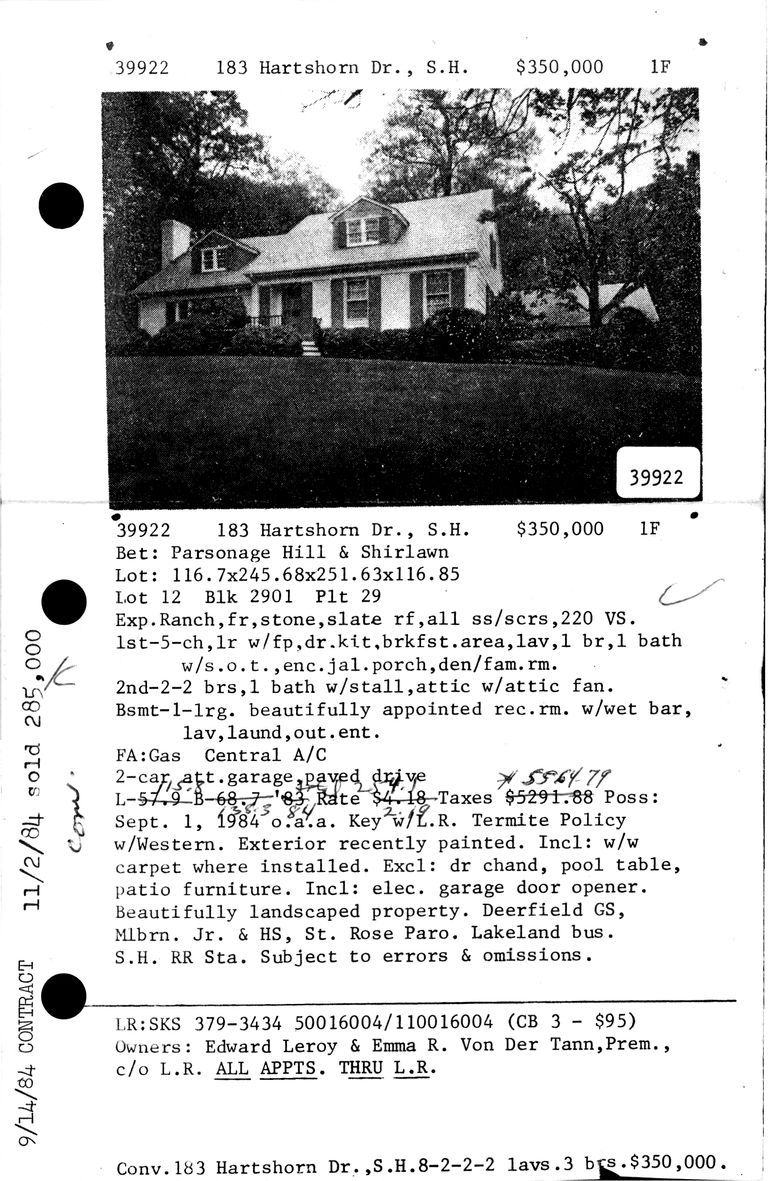 39922 183 Hartshorn Dr., S.H. $350,000 1F
39922
39922 183 Hartshorn Dr., S.H. $350,000 1F
Bet: Parsonage Hill & Shirlawn
Lot: 116.7x245.68x251.63x116.85
Lot 12 Blk 2901 Plt 29
Exp.Ranch,fr,stone,slate rf,all ss/scrs,220 VS.
1st-5-ch,lr w/fp,dr.kit,brkfst.area,lav,1 br,1 bath
w/s.o.t.,enc.jal.porch,den/fam.rm.
2nd-2-2 brs,1 bath w/stall,attic w/attic fan.
Bsmt-1-lrg. beautifully appointed rec.rm. w/wet bar,
lav,laund,out.ent.
FA:Gas Central A/C
2-car att.garage,paved drive
115.8 5564.79
L-57.9 B-68.7 '83 Rate $4.18 Taxes $5291.88 Poss:
138.3 84 2.19
Sept. 1, 1984 o.a.a. Key w/L.R. Termite Policy
w/Western. Exterior recently painted. Incl: w/w
carpet where installed. Excl: dr chand, pool table,
patio furniture. Incl: elec. garage door opener.
Beautifully landscaped property. Deerfield GS,
Mlbrn. Jr. & HS, St. Rose Paro. Lakeland bus.
S.H. RR Sta. Subject to errors & omissions.
LR:SKS 379-3434 50016004/110016004 (CB 3 - $95)
Owners: Edward Leroy & Emma R. Von Der Tann,Prem.,
c/o L.R. ALL APPTS. THRU L.R.
Conv.183 Hartshorn Dr.,S.H.8-2-2-2 lavs.3 brs.$350,000.
9/14/84 CONTRACT 11/2/84 sold 285,000
conv. K